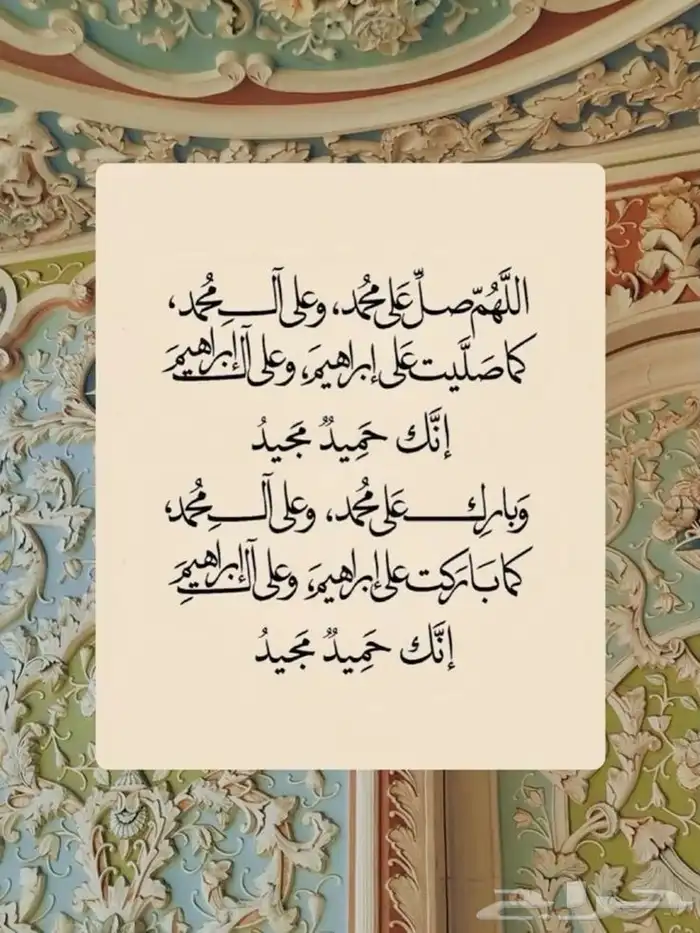 اللَّهُمّ صلِّ عَلى محُمد، وعلى آلِ محُمد،
كما صَلَّيت عَلى إبراهيمَ، وعلى آل إبراهيمَ
إنَّك حَمِيدٌ مَجيدُ
وَبارِك عَلى محُمد، وعلى آلِ محُمد،
كما بَارَكت على إبراهيمَ، وعلى آل إبراهيمَ
إنَّك حَمِيدٌ مَجيدُ
حراج